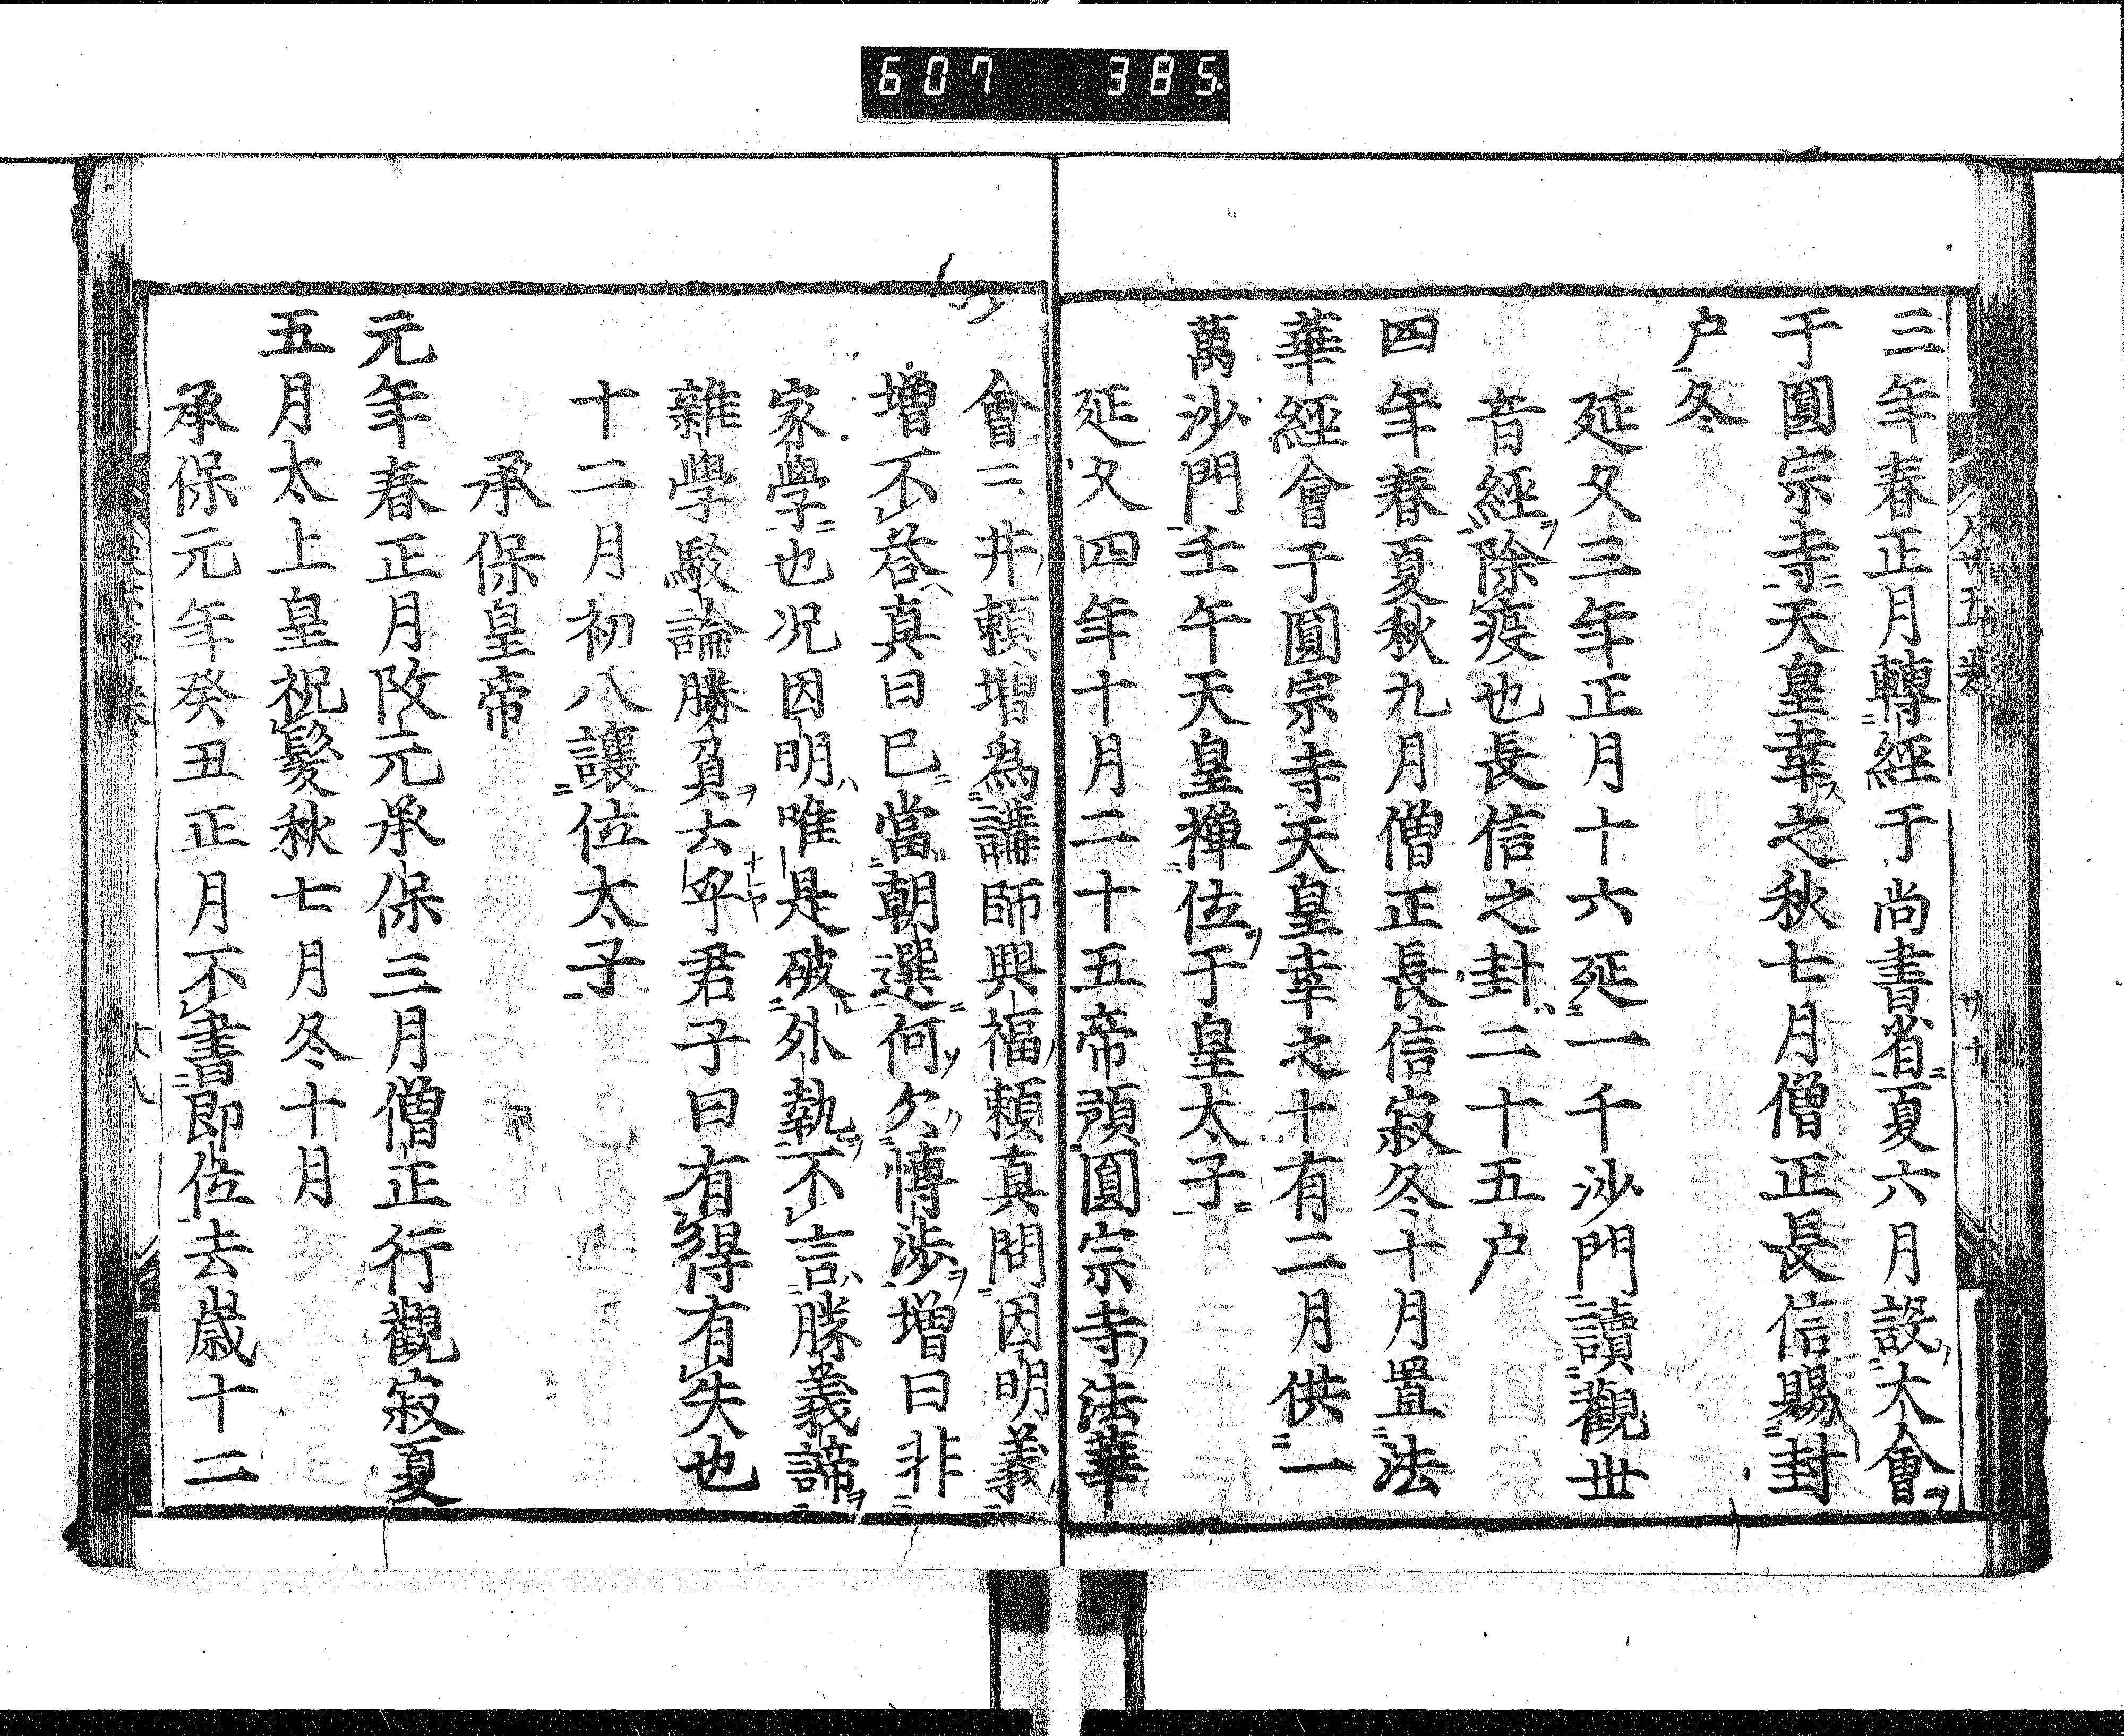 607 385
三年春正月轉經于尚書省夏六月設大會
于圓宗寺天皇幸之秋七月僧正長信賜封
户冬
延久三年正月十六延一千沙門讀觀世
音經除疫也長信之封二十五户
四年春夏秋九月僧正長信寂冬十月置法
華經會于圓宗寺天皇幸之十有二月供一
萬沙門壬午天皇禅位于皇太子
延久四年十月二十五帝預圓宗寺法華
會三井頼増為講師興福頼真問因明義
増不荅真曰已當朝選何欠博渉増曰非
家學也况因明唯是破外執不言勝義諦
雜學駁論勝負云乎君子曰有得有失也
十二月初八讓位太子
承保皇帝
元年春正月改元承保三月僧正行觀寂夏
五月太上皇祝髮秋七月冬十月
承保元年癸丑正月不書即位去歳十二